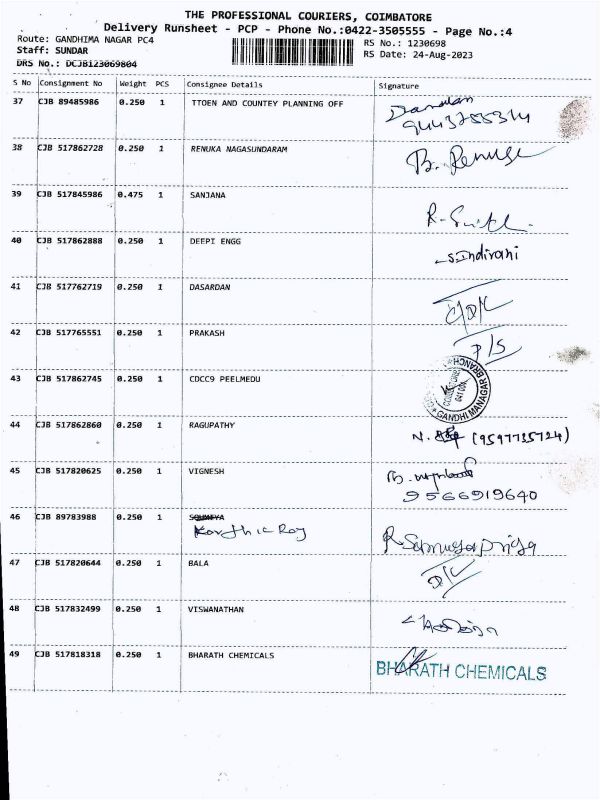 THE PROFESSIONAL COURIERS, COIMBATORE
Delivery Runsheet - PCP - Phone No.:0422-3505555 - Page No.:4
Route: GANDHIMA NAGAR PC4
RS No.: 1230698
Staff: SUNDAR
RS Date: 24-Aug-2023
DRS No.: DCJB123069804
S No Consignment No Weight PCS Consignee Details Signature
37 CJB 89485986 0.250 1 TTOEN AND COUNTEY PLANNING OFF
9443755314
38 CJB 517862728 0.250 1 RENUKA NAGASUNDARAM
B. Renuga
39 CJB 517845986 0.475 1 SANJANA
40 CJB 517862888 0.250 1 DEEPI ENGG
S Indirani
41 CJB 517762719 0.250 1 DASARDAN
42 CJB 517765551 0.250 1 PRAKASH
P/S
43 CJB 517862745 0.250 1 CDCC9 PEELMEDU
GANDHI MANAGAR BRANCH
44 CJB 517862860 0.250 1 RAGUPATHY
(9597735724)
45 CJB 517820625 0.250 1 VIGNESH
9566919640
46 CJB 89783988 0.250 1
Karthic Roy
47 CJB 517820644 0.250 1 BALA
48 CJB 517832499 0.250 1 VISWANATHAN
49 CJB 517818318 0.250 1 BHARATH CHEMICALS
BHARATH CHEMICALS